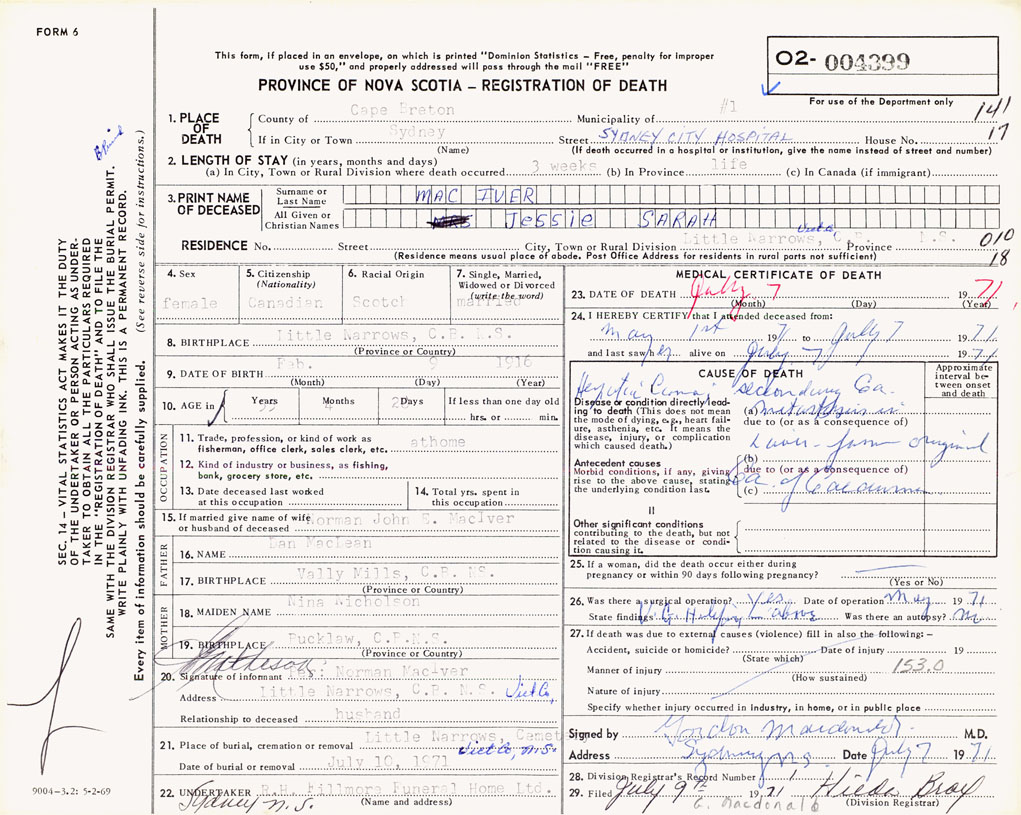 FORM 6
This form, if placed in an envelope, on which is printed "Dominion Statistics – Free, penalty for improper
use $50," and properly addressed will pass through the mail "FREE"
PROVINCE OF NOVA SCOTIA – REGISTRATION OF DEATH
O2- 004399
For use of the Department only
141
17
1. PLACE OF DEATH
County of Cape Breton Municipality of #1
If in City or Town Sydney Street SYDNEY CITY HOSPITAL House No.
(Name) (If death occurred in a hospital or institution, give the name instead of street and number)
2. LENGTH OF STAY (in years, months and days)
(a) In City, Town or Rural Division where death occurred 3 weeks (b) In Province life (c) In Canada (if immigrant)
3. PRINT NAME OF DECEASED
Surname or Last Name MAC IVER
All Given or Christian Names MRS JESSIE SARAH
Vict Co,
RESIDENCE No. Street City, Town or Rural Division Little Narrows, C.B. Province N.S. 010
(Residence means usual place of abode. Post Office Address for residents in rural parts not sufficient) 18
4. Sex
female
5. Citizenship
(Nationality)
Canadian
6. Racial Origin
Scotch
7. Single, Married,
Widowed or Divorced
(write the word)
married
8. BIRTHPLACE Little Narrows, C.B. N.S.
(Province or Country)
9. DATE OF BIRTH Feb. 9 1916
(Month) (Day) (Year)
10. AGE in Years 55 Months 4 Days 28 If less than one day old
hrs. or min.
OCCUPATION
11. Trade, profession, or kind of work as
fisherman, office clerk, sales clerk, etc. athome
12. Kind of industry or business, as fishing,
bank, grocery store, etc.
13. Date deceased last worked
at this occupation
14. Total yrs. spent in
this occupation
15. If married give name of wife
or husband of deceased Norman John E. MacIver
FATHER
16. NAME Dan MacLean
17. BIRTHPLACE Vally Mills, C.B. NS.
(Province or Country)
MOTHER
18. MAIDEN NAME Nina Nicholson
19. BIRTHPLACE Bucklaw, C.B.N.S.
(Province or Country)
20. Signature of informant Norman MacIver
Address Little Narrows, C.B. N.S. Vict Co,
Relationship to deceased husband
21. Place of burial, cremation or removal Little Narrows, Cemet
Vict Co, N.S.
Date of burial or removal July 10, 1971
22. UNDERTAKER R.H. Fillmore Funeral Home Ltd.
Sydney N.S. (Name and address)
MEDICAL CERTIFICATE OF DEATH
23. DATE OF DEATH July 7 1971
(Month) (Day) (Year)
24. I HEREBY CERTIFY that I attended deceased from:
May 1st 1971 to July 7 1971
and last saw her alive on July 7 1971
CAUSE OF DEATH
Approximate
interval be-
tween onset
and death
Hepatic Coma, secondary Ca.
Disease or condition directly lead-
ing to death (This does not
mean the mode of dying, e.g., heart fail-
ure, asthenia, etc. It means the
disease, injury, or complication
which caused death.)
(a) metastasis in
due to (or as a consequence of)
Liver – from original
Antecedent causes
Morbid conditions, if any, giving
rise to the above cause, stating
the underlying condition last.
(b)
due to (or as a consequence of)
(c) Ca. of
II
Other significant conditions
contributing to the death, but not
related to the disease or condi-
tion causing it.
25. If a woman, did the death occur either during
pregnancy or within 90 days following pregnancy?
(Yes or No)
26. Was there a surgical operation? Yes Date of operation May 1971
State findings above Was there an autopsy? No
27. If death was due to external causes (violence) fill in also the following: –
Accident, suicide or homicide? Date of injury 19
(State which)
Manner of injury 153.0
(How sustained)
Nature of injury
Specify whether injury occurred in industry, in home, or in public place
Signed by Gordon Macdonald M.D.
Address Sydney N.S. Date July 7 1971
28. Division Registrar's Record Number 1
29. Filed July 9th 1971 Hilda Bray
C. Macdonald (Division Registrar)
SEC. 14 – VITAL STATISTICS ACT MAKES IT THE DUTY
OF THE UNDERTAKER OR PERSON ACTING AS UNDER-
TAKER TO OBTAIN ALL THE PARTICULARS REQUIRED
IN THE "REGISTRATION OF DEATH" AND TO FILE THE
SAME WITH THE DIVISION REGISTRAR WHO SHALL ISSUE THE BURIAL PERMIT.
WRITE PLAINLY WITH UNFADING INK. THIS IS A PERMANENT RECORD.
Every item of information should be carefully supplied. (See reverse side for instructions.)
9004-3.2: 5-2-69